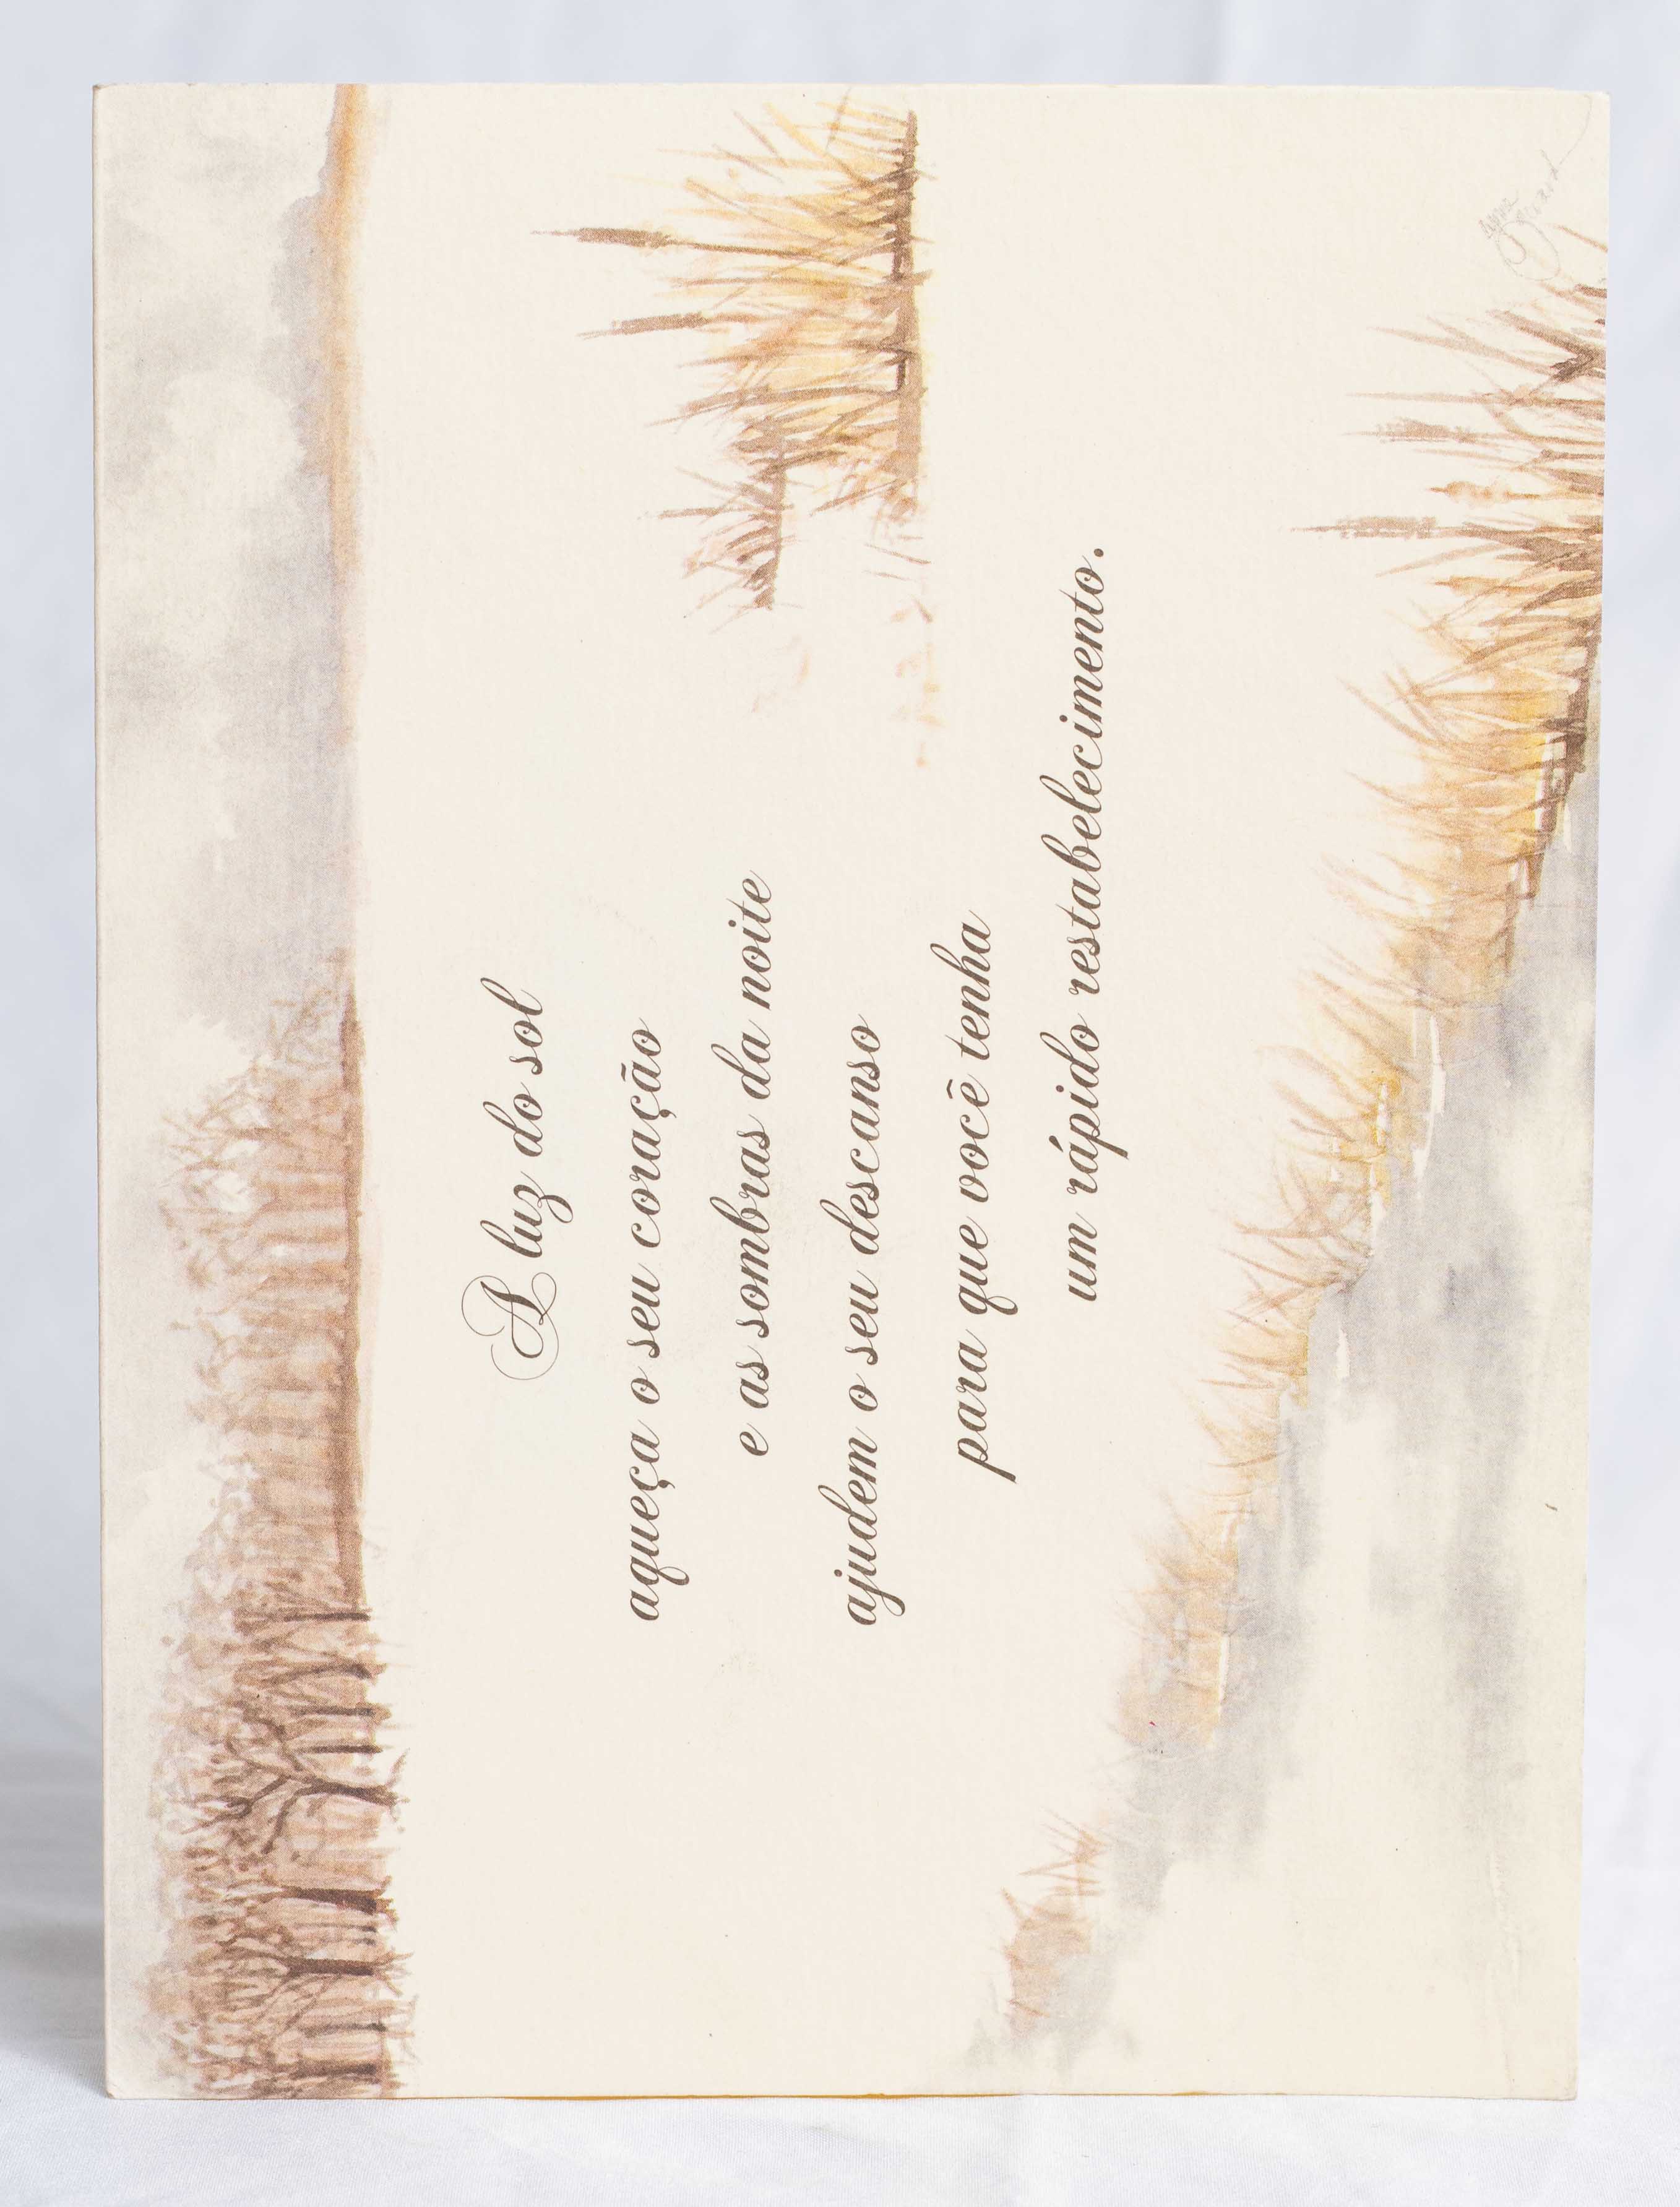 A luz do sol
aqueça o seu coração
e as sombras da noite
ajudem o seu descanso
para que você tenha
um rápido restabelecimento.